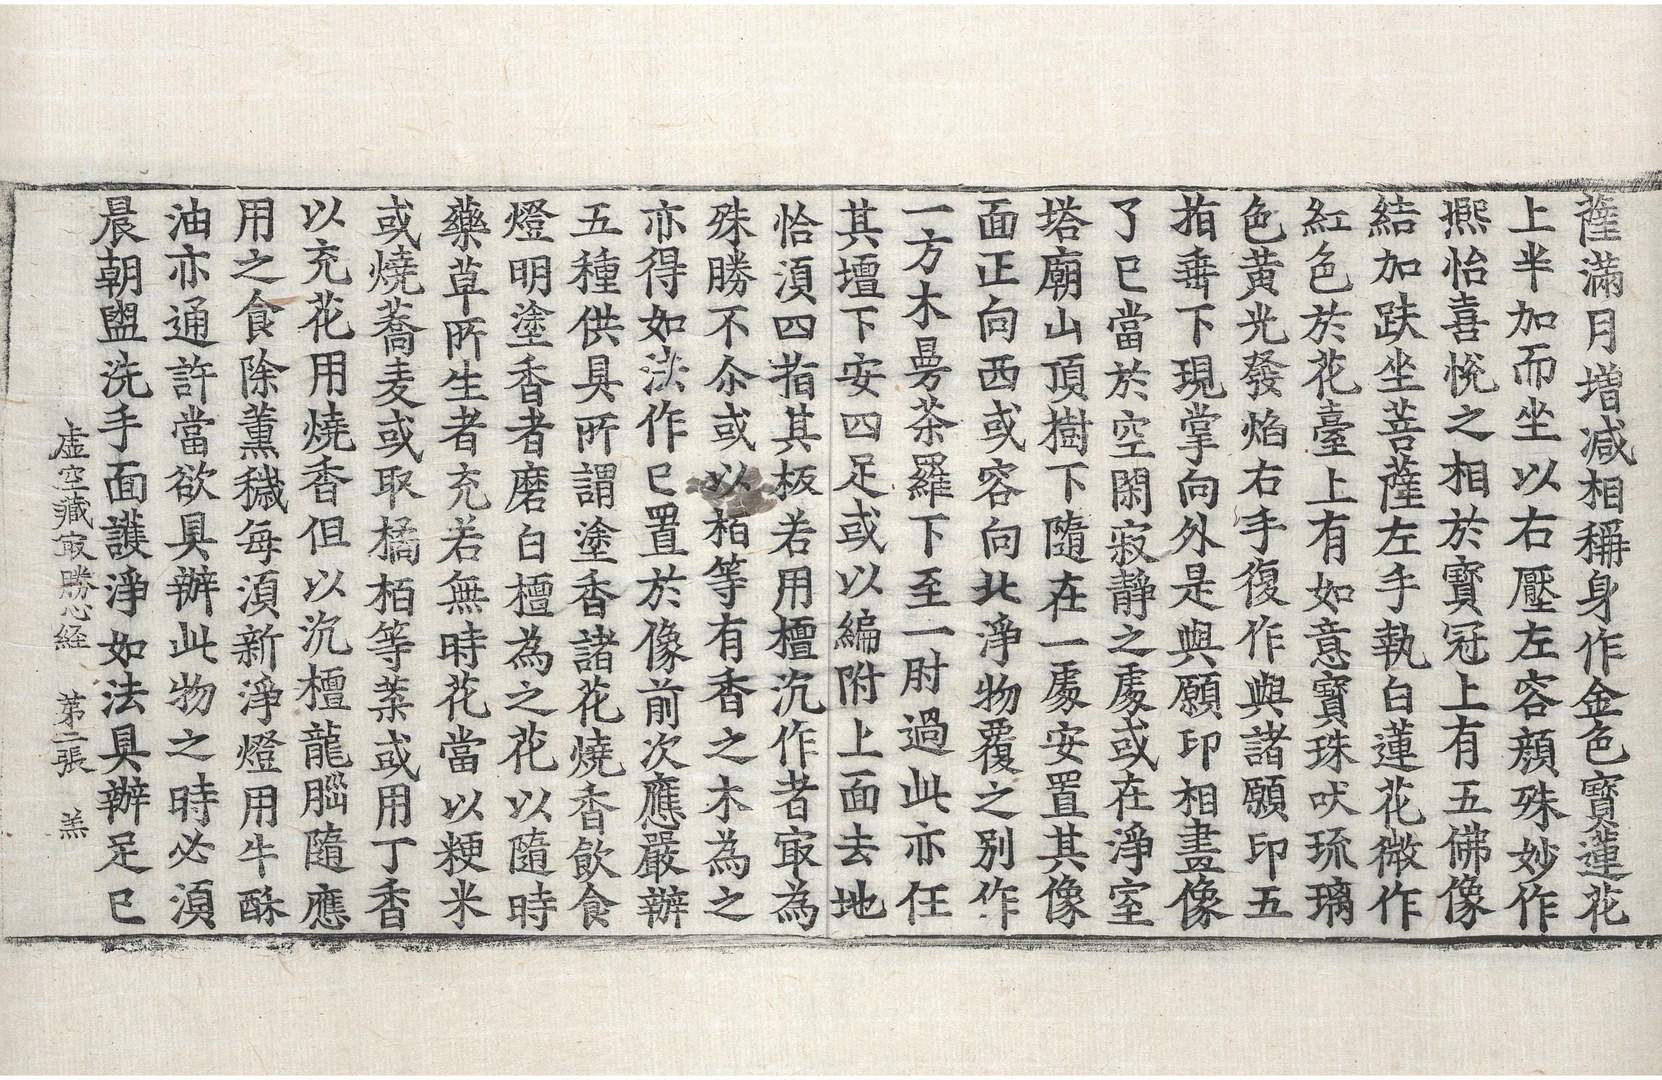 薩滿月增減相稱身作金色寶蓮花
上半加而坐以右壓左容顏殊妙作
熈怡喜悅之相於寶冠上有五佛像
結加趺坐菩薩左手執白蓮花微作
紅色於花臺上有如意寶珠吠琉璃
色黃光發焰右手復作與諸願印五
指垂下現掌向外是與願印相畫像
了已當於空閑寂靜之處或在淨室
塔廟山頂樹下隨在一處安置其像
面正向西或容向北淨物覆之別作
一方木曼茶羅下至一肘過此亦任
其壇下安四足或以編附上面去地
恰湏四指其板若用檀沉作者㝡為
殊勝不尒或以柏等有香之木為之
亦得如法作已置於像前次應嚴辦
五種供具所謂塗香諸花燒香飲食
燈明塗香者磨白檀為之花以隨時
藥草所生者充若無時花當以粳米
或燒蕎麦或取橘柏等葉或用丁香
以充花用燒香但以沉檀龍腦隨應
用之食除薰穢每湏新淨燈用牛酥
油亦通許當欲具辦此物之時必湏
晨朝盥洗手面護淨如法具辦足已
虛空藏㝡勝心経　第二張　羔